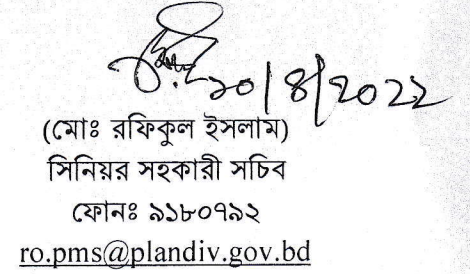 ২০/৪/২০২২
(মোঃ রফিকুল ইসলাম)
সিনিয়র সহকারী সচিব
ফোনঃ ৯১৮০৭৯২
ro.pms@plandiv.gov.bd